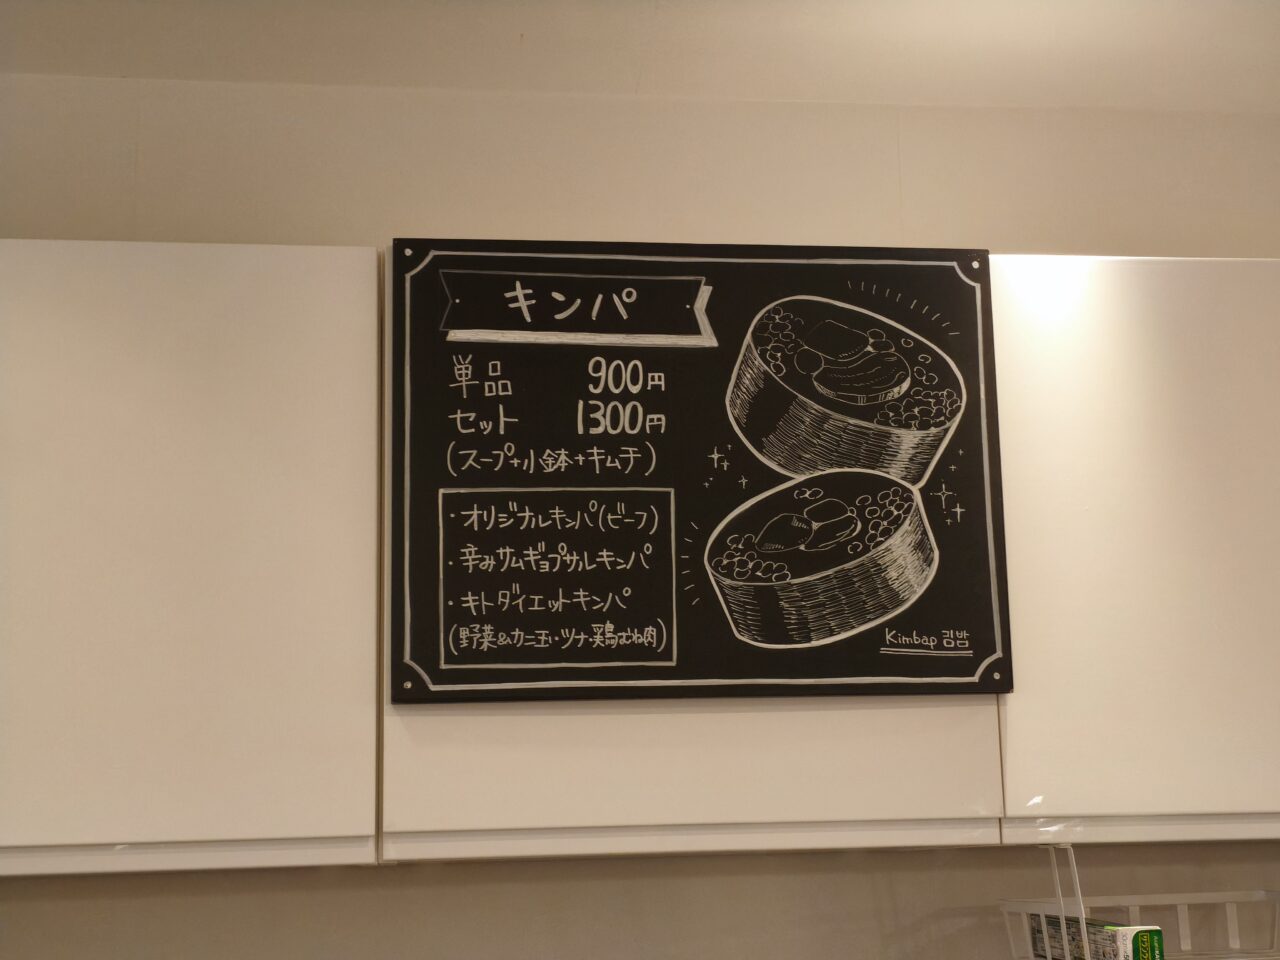 キンパ
単品 900円
セット 1300円
(スープ+小鉢+キムチ)
・オリジナルキンパ(ビーフ)
・辛みサムギョプサルキンパ
・キトダイエットキンパ
(野菜&カニ玉・ツナ・鶏むね肉)
Kimbap 김밥
サランラップ